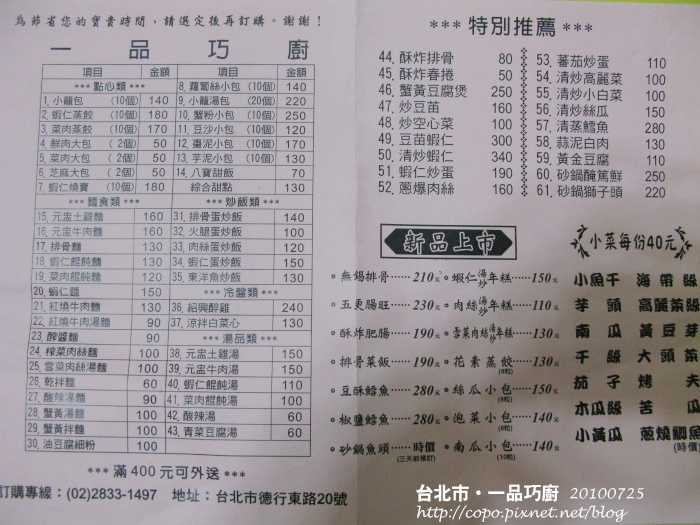 為節省您的寶貴時間，請選定後再訂購。謝謝！
一品巧廚
項目 金額 項目 金額
*** 點心類 ***
1. 小籠包 (10個) 140
2. 蝦仁蒸餃 (10個) 180
3. 菜肉蒸餃 (10個) 170
4. 鮮肉大包 ( 2個) 50
5. 菜肉大包 ( 2個) 50
6. 芝麻大包 ( 2個) 50
7. 蝦仁燒賣 (10個) 180
8. 蘿蔔絲小包 (10個) 140
9. 小籠湯包 (20個) 220
10. 蟹粉小包 (10個) 250
11. 豆沙小包 (10個) 120
12. 棗泥小包 (10個) 170
13. 芋泥小包 (10個) 130
14. 八寶甜飯 70
綜合甜點 130
*** 麵食類 ***
15. 元盅土雞麵 160
16. 元盅牛肉麵 160
17. 排骨麵 130
18. 蝦仁餛飩麵 130
19. 菜肉餛飩麵 120
20. 蝦仁麵 150
21. 紅燒牛肉麵 130
22. 紅燒牛肉湯麵 90
23. 醡醬麵 90
24. 榨菜肉絲麵 100
25. 雪菜肉絲湯麵 100
26. 乾拌麵 60
27. 酸辣湯麵 90
28. 蟹黃湯麵 100
29. 蟹黃拌麵 100
30. 油豆腐細粉 100
*** 炒飯類 ***
31. 排骨蛋炒飯 140
32. 火腿蛋炒飯 100
33. 肉絲蛋炒飯 120
34. 蝦仁蛋炒飯 150
35. 東洋魚炒飯 130
*** 冷盤類 ***
36. 紹興醉雞 240
37. 涼拌白菜心 130
*** 湯品類 ***
38. 元盅土雞湯 150
39. 元盅牛肉湯 150
40. 蝦仁餛飩湯 110
41. 菜肉餛飩湯 100
42. 酸辣湯 60
43. 青菜豆腐湯 60
*** 滿400元可外送 ***
訂購專線：(02)2833-1497 地址：台北市德行東路20號
*** 特別推薦 ***
44. 酥炸排骨 80
45. 酥炸春捲 50
46. 蟹黃豆腐煲 250
47. 炒豆苗 160
48. 炒空心菜 100
49. 豆苗蝦仁 300
50. 清炒蝦仁 340
51. 蝦仁炒蛋 190
52. 蔥爆肉絲 160
53. 蕃茄炒蛋 110
54. 清炒高麗菜 100
55. 清炒小白菜 100
56. 清炒絲瓜 150
57. 清蒸鱈魚 280
58. 蒜泥白肉 130
59. 黃金豆腐 110
60. 砂鍋醃篤鮮 250
61. 砂鍋獅子頭 220
新品上市
無錫排骨……210元
五更腸旺……230元
酥炸肥腸……190元
排骨菜飯……190元
豆酥鱈魚……280元
椒鹽鱈魚……280元
砂鍋魚頭……時價
(三天前預訂)
蝦仁湯炒年糕…150元
肉絲湯炒年糕…110元
雪菜肉絲湯炒年糕…130元
花素蒸餃…130元
(8粒)
絲瓜小包…150元
(8粒)
泡菜小包…140元
(8粒)
南瓜小包…140元
(10粒)
小菜每份40元
小魚干 海帶絲
芋頭 高麗菜絲
南瓜 黃豆芽
干絲 大頭菜
茄子 烤夫
木瓜絲 苦瓜
小黃瓜 蔥燒鯽魚
(時價)
台北市・一品巧廚 20100725
http://copo.pixnet.net/blog